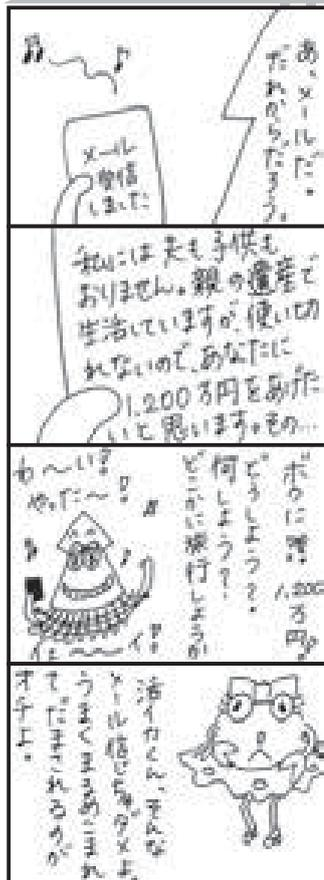 あ、メールだ。
だれからだろう。
メール
受信
しました
私には夫も子供も
おりません。親の遺産で
生活していますが、使い切
れないので、あなたに
1,200万円をあげた
いと思います。その…
ボクに
1,200万円?
どうしよう?
何しよう?
どこかに旅行しようか
わ〜い!
やった〜!
活イカくん、そんな
メール信じちゃダメよ。
うまくまるめこまれ
てだまされるのが
オチよ。